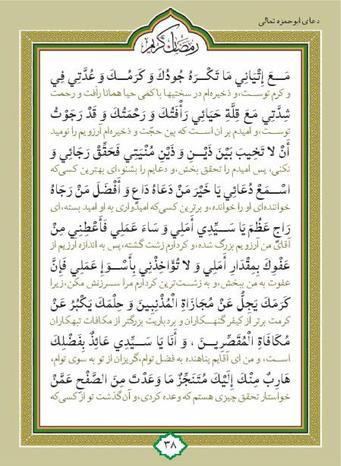 دعای ابوحمزه ثمالی
رمضان کریم
مَعَ إِتْيَانِي مَا تَكْرَهُ جُودُكَ وَ كَرَمُكَ وَ عُدَّتِي فِي
و کرم توست، و ذخیره‌ام در سختیها با کمی حیا همانا رأفت و رحمت
شِدَّتِي مَعَ قِلَّةِ حَيَائِي رَأْفَتُكَ وَ رَحْمَتُكَ وَ قَدْ رَجَوْتُ
توست، و امیدم بر ان است که بین حجّت و ذخیره‌ام آرزویم را نومید
أَنْ لَا تَخِيبَ بَيْنَ ذَيْنِ وَ ذَيْنِ مُنْيَتِي فَحَقِّقْ رَجَائِي وَ
نکنی، پس امیدم را تحقق بخش، و دعایم را بشنو، ای بهترین کسی‌که
اسْمَعْ دُعَائِي يَا خَيْرَ مَنْ دَعَاهُ دَاعٍ وَ أَفْضَلَ مَنْ رَجَاهُ
خواننده‌ای او را خوانده، و برترین کسی‌که امیدواری به او امید بسته، ای
رَاجٍ عَظُمَ يَا سَيِّدِي أَمَلِي وَ سَاءَ عَمَلِي فَأَعْطِنِي مِنْ
آقای من آرزویم بزرگ شده، و کردارم زشت گشته، پس به اندازه آرزیم از
عَفْوِكَ بِمِقْدَارِ أَمَلِي وَ لَا تُؤَاخِذْنِي بِأَسْوَإِ عَمَلِي فَإِنَّ
عفوت به من ببخش، و به زشت‌ترین کردارم مرا سرزنش مکن، زیرا
كَرَمَكَ يَجِلُّ عَنْ مُجَازَاةِ الْمُذْنِبِينَ وَ حِلْمَكَ يَكْبُرُ عَنْ
کرمت برتر از کیفر گنهکاران و بردباریت بزرگتر از مکافات تبهکاران
مُكَافَاةِ الْمُقَصِّرِينَ ، وَ أَنَا يَا سَيِّدِي عَائِذٌ بِفَضْلِكَ
است، و من ای آقایم پناهنده به فضل توام، گریزان از تو به سوی توام،
هَارِبٌ مِنْكَ إِلَيْكَ مُتَنَجِّزٌ مَا وَعَدْتَ مِنَ الصَّفْحِ عَمَّنْ
خواستار تحقق چیزی هستم که وعده کردی، و آن گذشت تو از کسی‌که
۳۸